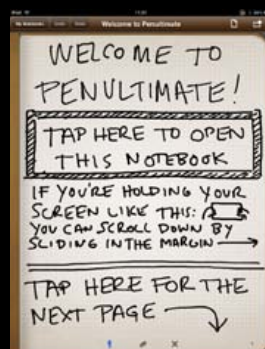 Welcome to Penultimate
WELCOME TO
PENULTIMATE!
TAP HERE TO OPEN
THIS NOTEBOOK
IF YOU'RE HOLDING YOUR
SCREEN LIKE THIS:
YOU CAN SCROLL DOWN BY
SLIDING IN THE MARGIN
TAP HERE FOR THE
NEXT PAGE